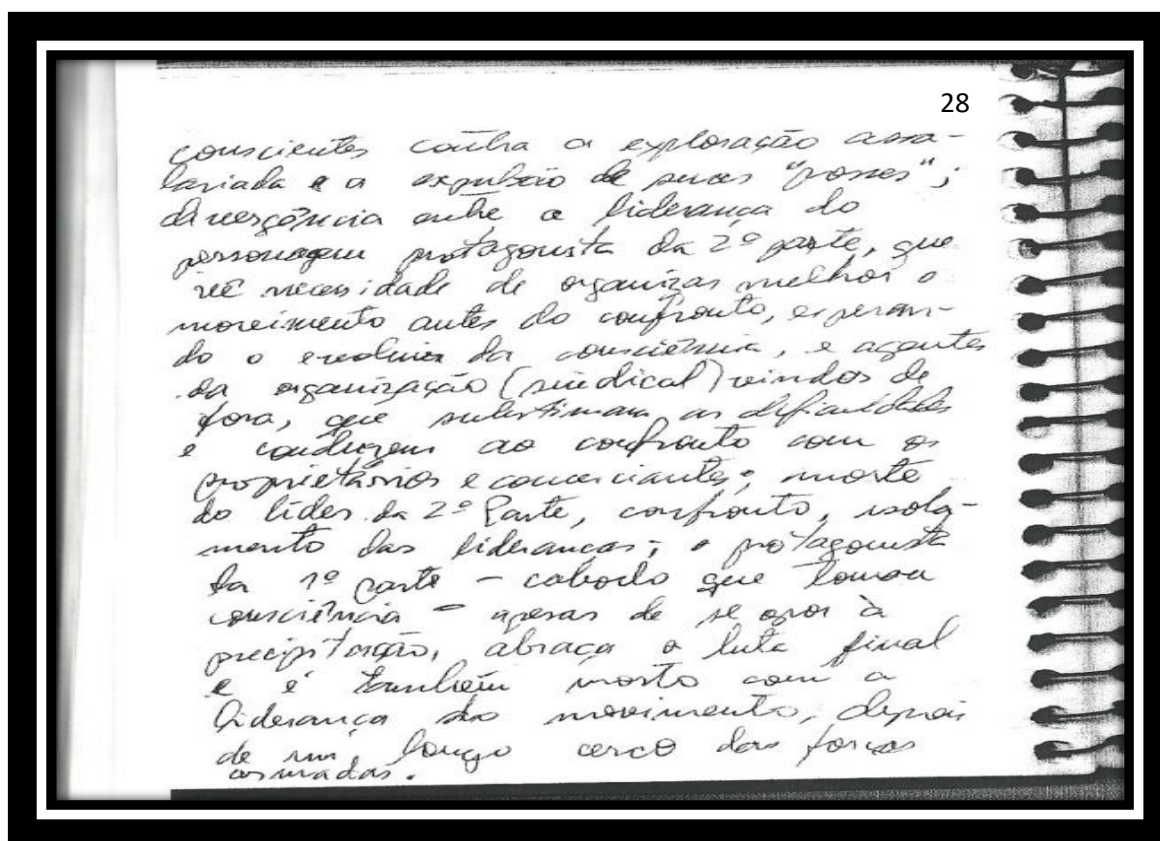 28
conscientes contra a exploração assa-
lariada e a expulsão de suas "posses";
divergência entre a liderança do
personagem protagonista da 2º parte, que
vê necessidade de organizar melhor o
movimento antes do confronto, esperan-
do o evoluir da consciência, e agentes
da organização (sindical) vindos de
fora, que subestimam as dificuldades
e conduzem ao confronto com os
proprietários e comerciantes; morte
do líder da 2º Parte, confronto, isola-
mento das lideranças; o protagonista
da 1º parte - caboclo que tomou
consciência - apesar de se opor à
precipitação, abraça a luta final
e é também morto com a
liderança do movimento, depois
de um longo cerco das forças
armadas.